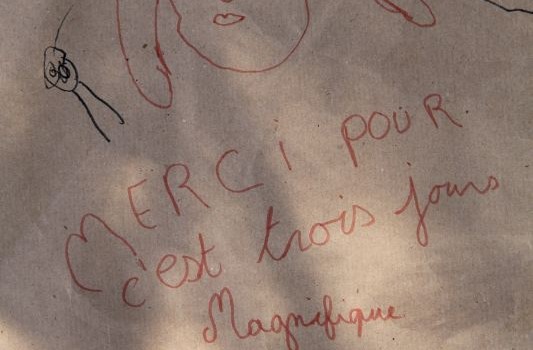 MERCI POUR
c'est trois jours
Magnifique